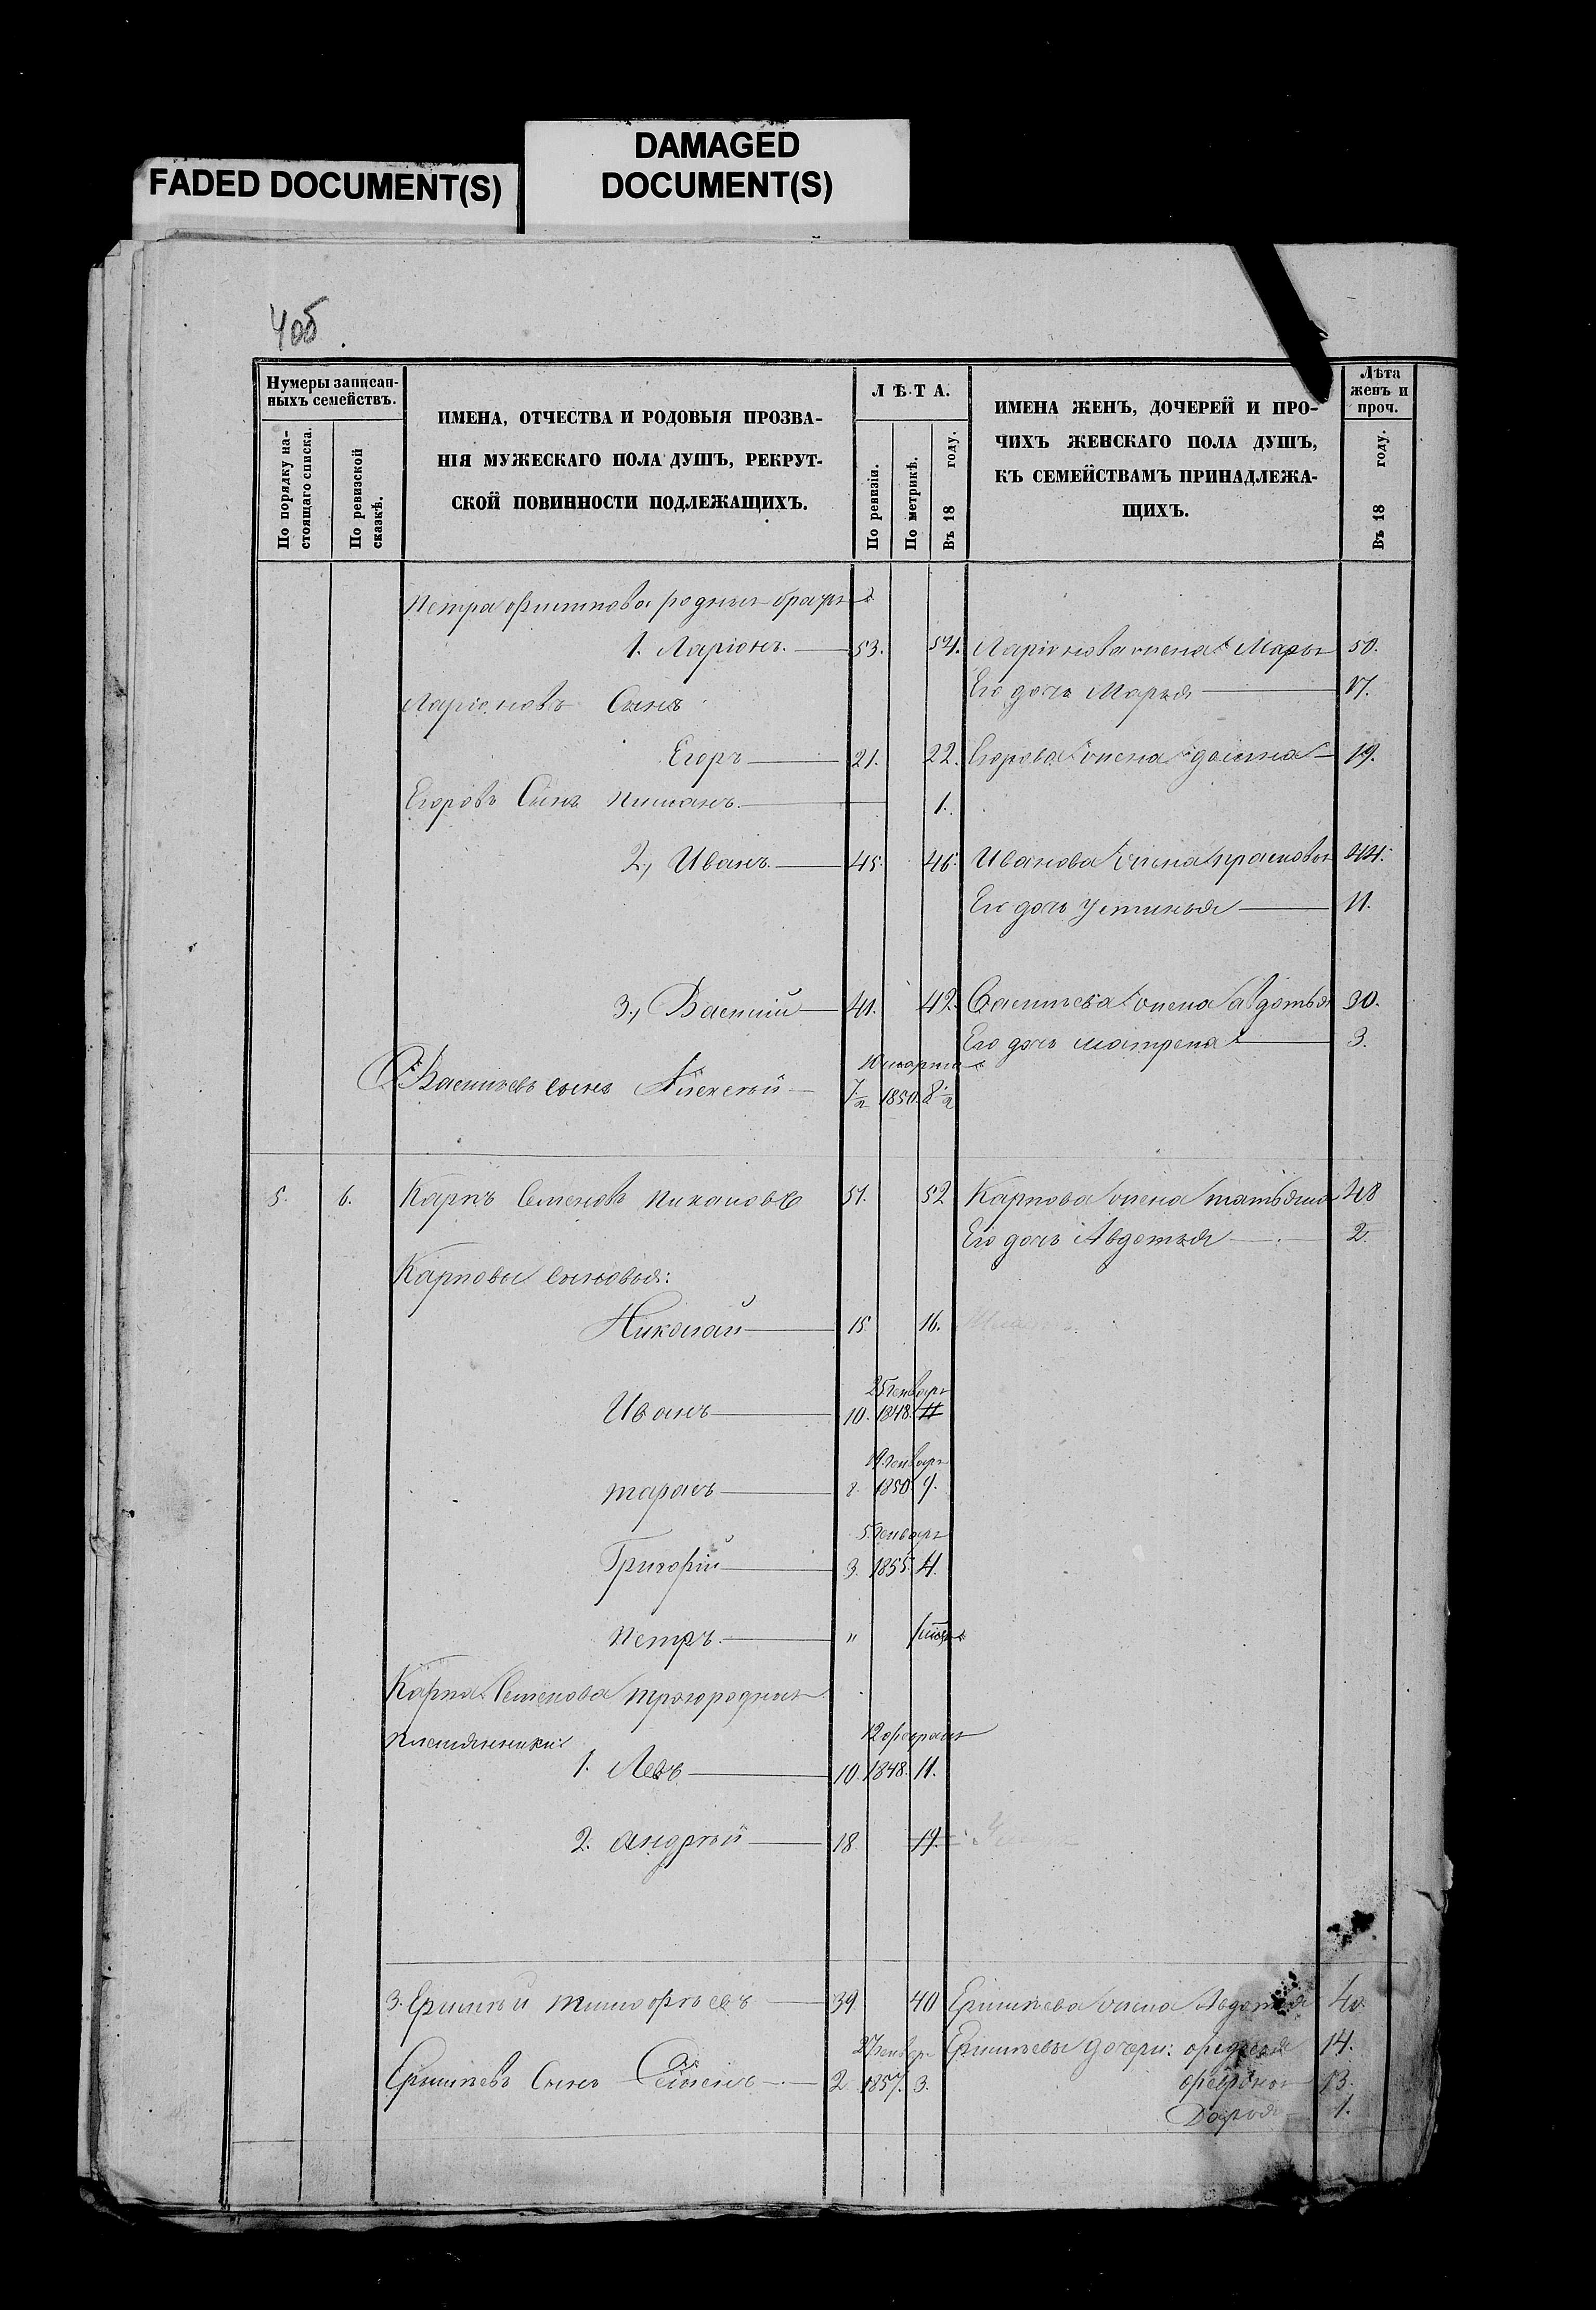 FADED DOCUMENT(S)
DAMAGED
DOCUMENT(S)
4об.
Нумеры записан-
ныхъ семействъ.
По порядку на-
стоящаго списка.
По ревизской
сказкѣ.
ИМЕНА, ОТЧЕСТВА И РОДОВЫЯ ПРОЗВА-
НІЯ МУЖЕСКАГО ПОЛА ДУШЪ, РЕКРУТ-
СКОЙ ПОВИННОСТИ ПОДЛЕЖАЩИХЪ.
ЛѢТА.
По ревизіи.
По метрикѣ.
Въ 18 году.
ИМЕНА ЖЕНЪ, ДОЧЕРЕЙ И ПРО-
ЧИХЪ ЖЕНСКАГО ПОЛА ДУШЪ,
КЪ СЕМЕЙСТВАМЪ ПРИНАДЛЕЖА-
ЩИХЪ.
Лѣта
женъ и
проч.
Въ 18 году.
Петра Филипова родныя братья
1. Ларіонъ. 53. 54. Ларіонова жена Марья 50.
Его дочь Марья 17.
Ларіоновъ Сынъ
Егоръ 21. 22. Егорова жена 19.
Егоровъ Сынъ 1.
2, Иванъ 45. 46. Иванова жена прасковья 44.
Его дочь Устинья 11.
3, Василій 41. 42. Васильева жена авдотья 30.
Его дочь матрена 3.
марта
Васильевъ сынъ Алексѣй 7 1/2 1850. 8 1/2
5. 6. Карпъ Семеновъ 51. 52 Карпова жена татьяна 48
Его дочь Авдотья 2.
Карповы сыновья:
Николай 15 16.
25 генваря
Иванъ 10. 1848. 11
генваря
тарасъ 8. 1850. 9.
5 генваря
Григорій 3. 1855. 4.
Петръ. "
Карпа Семенова троюродныя
племянники:
12 февраля
1. Левъ 10. 1848. 11.
2. андрѣй 18. 19.
3. Ермилъ тимофѣевъ 39 40 жена Авдотья 40.
27 генваря дочери: 14.
Сынъ Семенъ 2 1857. 3. 13.
Дарья 1.